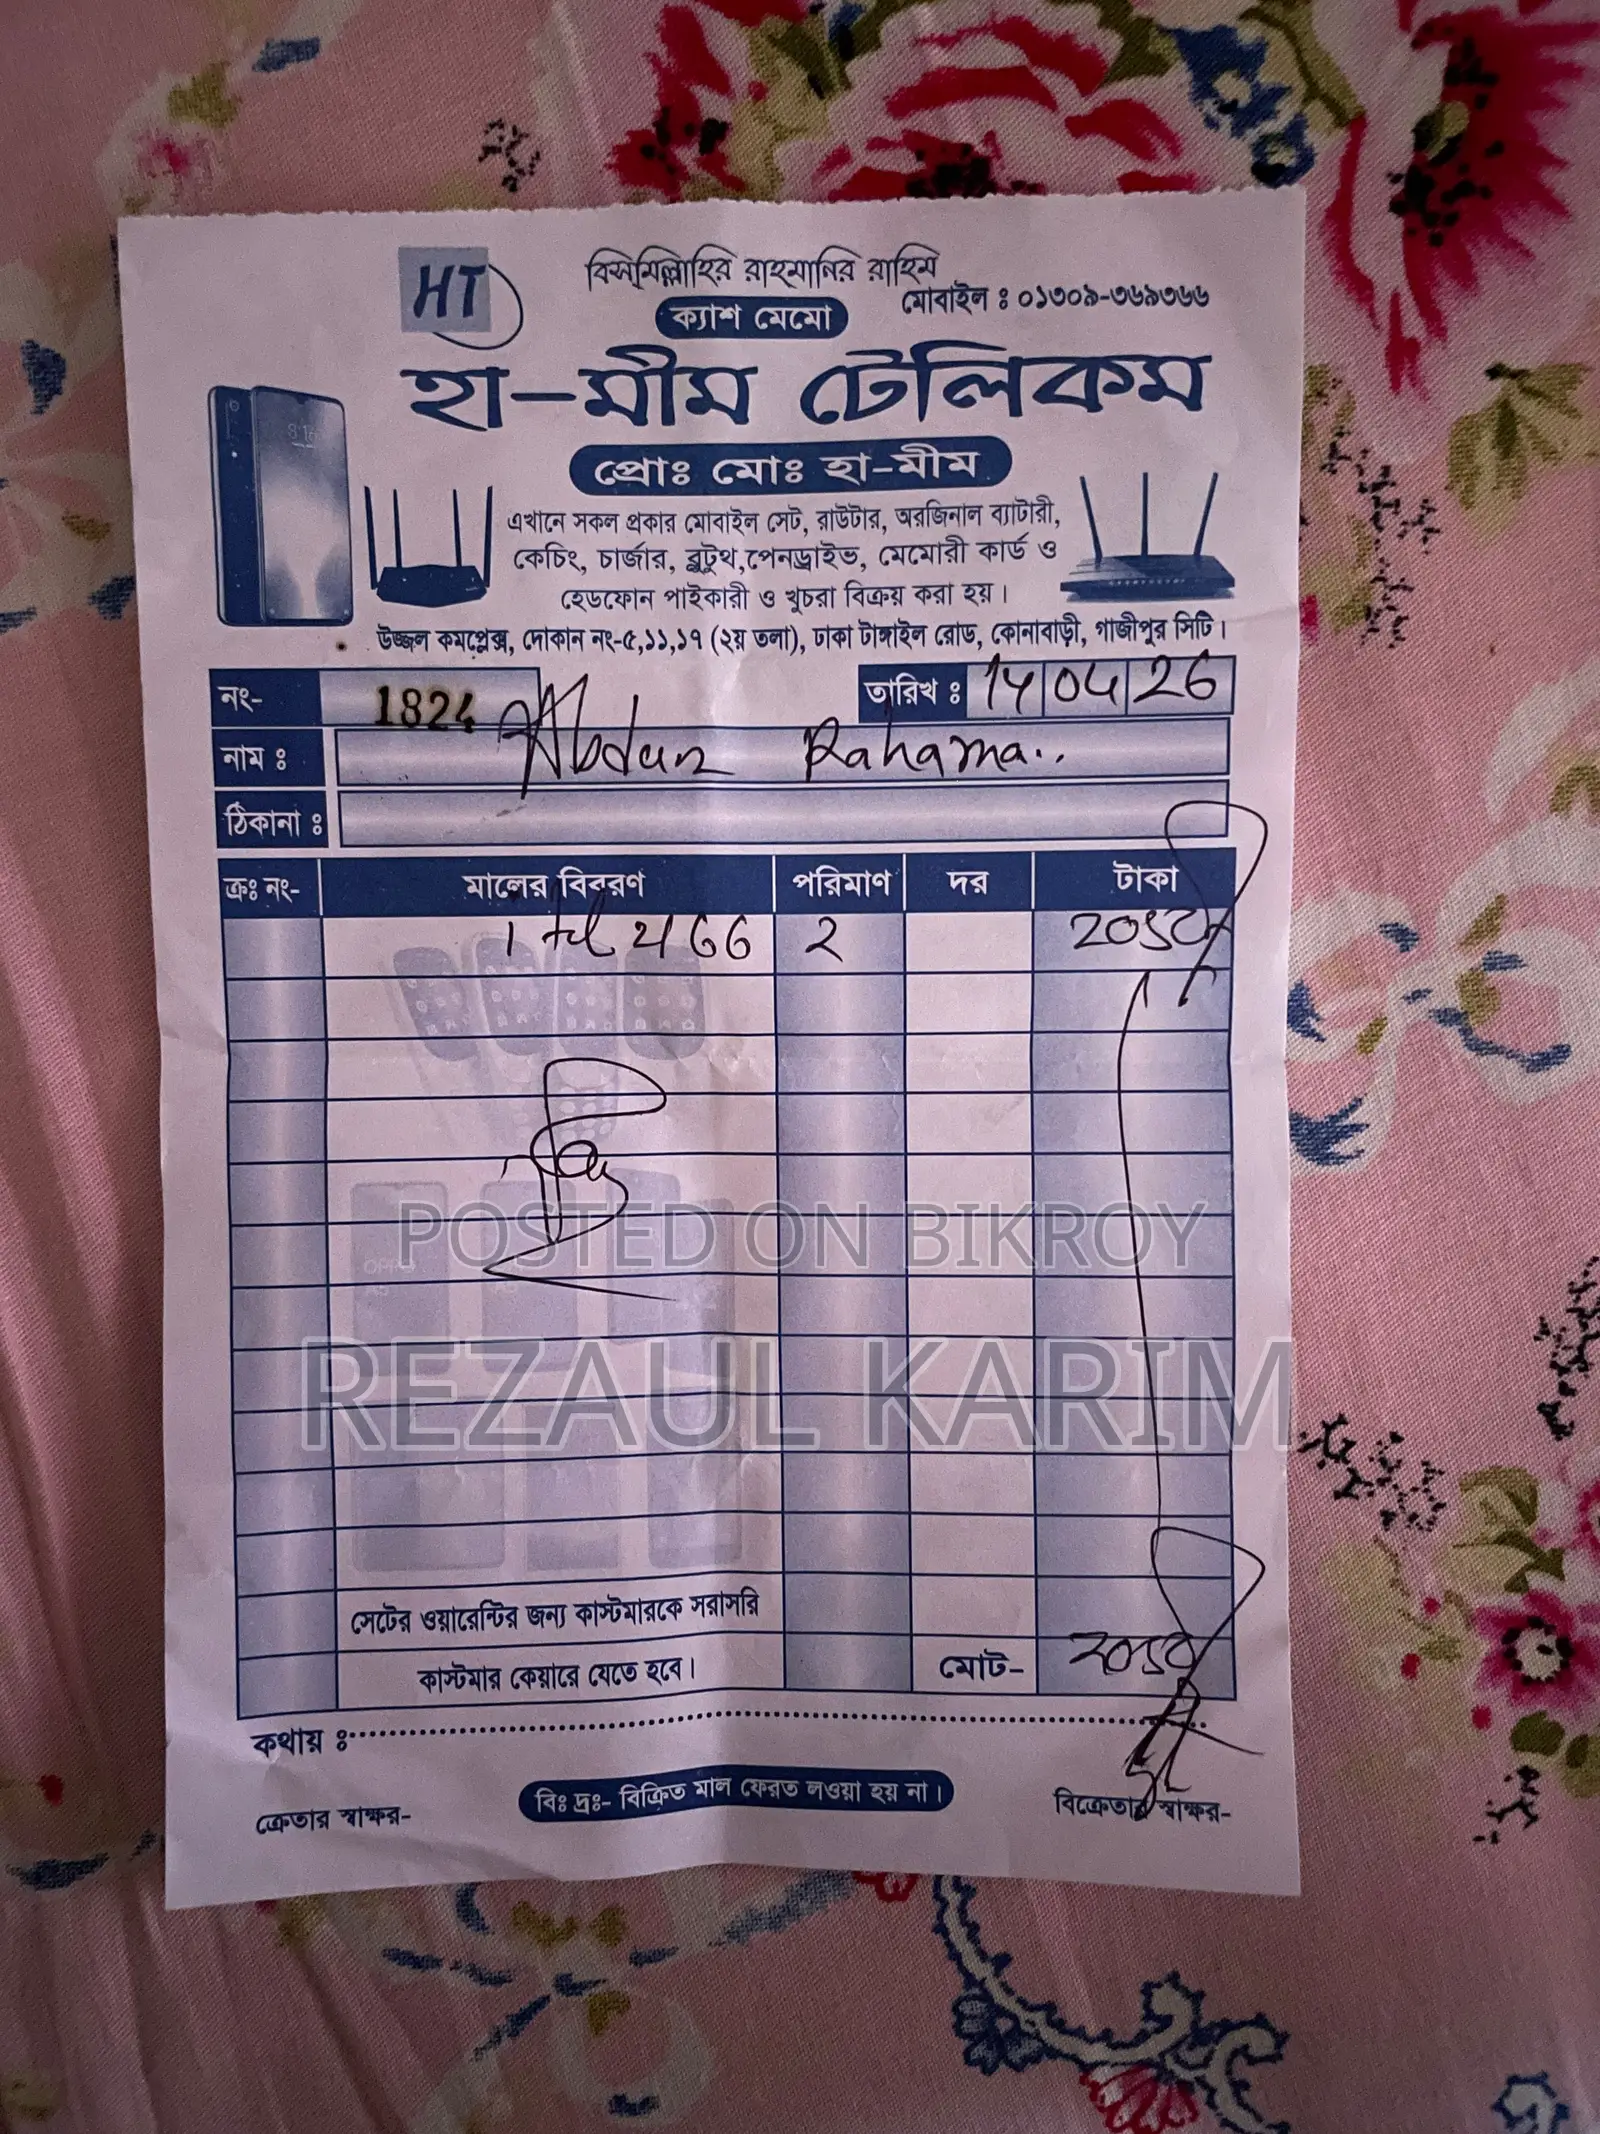 HT
বিসমিল্লাহির রাহমানির রাহিম
মোবাইল ঃ ০১৩০৯-৩৬৯৩৬৬
ক্যাশ মেমো
হা-মীম টেলিকম
প্রোঃ মোঃ হা-মীম
এখানে সকল প্রকার মোবাইল সেট, রাউটার, অরজিনাল ব্যাটারী,
কেচিং, চার্জার, ব্লুটুথ,পেনড্রাইভ, মেমোরী কার্ড ও
হেডফোন পাইকারী ও খুচরা বিক্রয় করা হয়।
উজ্জল কমপ্লেক্স, দোকান নং-৫,১১,১৭ (২য় তলা), ঢাকা টাঙ্গাইল রোড, কোনাবাড়ী, গাজীপুর সিটি।
নং- 1824 তারিখ ঃ 14 04 26
নাম ঃ Abdur Rahama..
ঠিকানা ঃ
ক্রঃ নং- মালের বিবরণ পরিমাণ দর টাকা
২
POSTED ON BIKROY
REZAUL KARIM
সেটের ওয়ারেন্টির জন্য কাস্টমারকে সরাসরি
কাস্টমার কেয়ারে যেতে হবে। মোট-
কথায় ঃ
ক্রেতার স্বাক্ষর- বিঃ দ্রঃ- বিক্রিত মাল ফেরত লওয়া হয় না। বিক্রেতার স্বাক্ষর-